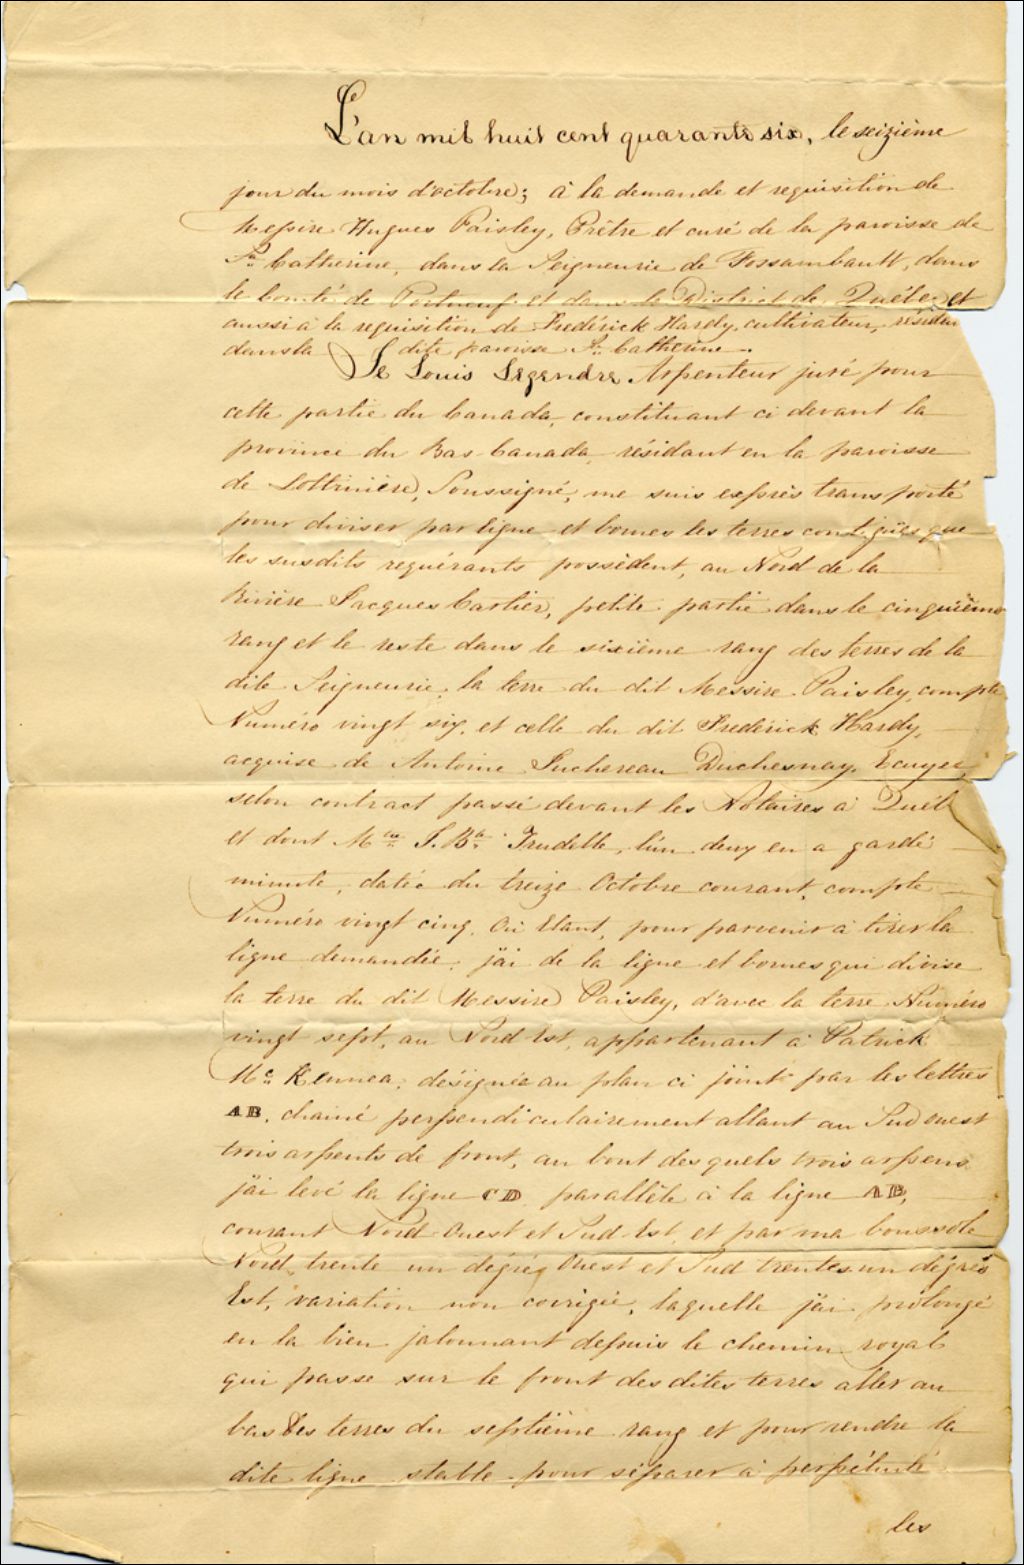 L'an mil huit cent quarante six, le seizième
jour du mois d'octobre; à la demande et requisition de
Messire Hugues Paisley, Prêtre et curé de la paroisse de
Ste Catherine, dans la Seigneurie de Fossambault, dans
le Comté de Portneuf et dans le District de Québec, et
aussi à la requisition de Frederick Hardy, cultivateur, résidan
dans la dite paroisse Ste Catherine.
Je Louis Legendre Arpenteur juré pour
cette partie du Canada, constituant ci devant la
province du Bas Canada, résidant en la paroisse
de Lotbinière, Soussigné, me suis exprès transporté
pour diviser par ligne et bornes les terres contigües que
les susdits requérants possèdent, au Nord de la
Rivière Jacques Cartier, petite partie dans le cinquième
rang et le reste dans le sixième rang des terres de la
dite Seigneurie, la terre du dit Messire Paisley, compte
Numéro vingt six, et celle du dit Frederick Hardy,
acquise de Antoine Juchereau Duchesnay, Ecuyer,
selon contract passé devant les Notaires à Québ
et dont Mtre J. Bte Trudelle, l'un deux en a gardé
minute, datée du treize Octobre courant, compte
Numéro vingt cinq. Où Etant, pour parvenir à tirer la
ligne demandée, j'ai de la ligne et bornes qui divise
la terre du dit Messire Paisley, d'avec la terre Numéro
vingt sept, au Nord Est, appartenant à Patrick
Mc Kennea, désignée au plan ci joint par les lettres
AB, chainé perpendiculairement allant au Sud ouest
trois arpents de front, au bout des quels trois arpens
j'ai levé la ligne CD parallèle à la ligne AB,
courant Nord Ouest et Sud Est, et par ma boussole
Nord, trente un dégrés Ouest et Sud trente un dégrés
Est, variation non corrigée, laquelle j'ai prolongé
en la bien jalonnant depuis le chemin royal
qui passe sur le front des dites terres aller au
bas Des terres du septième rang et pour rendre la
dite ligne stable pour séparer à perpétuité
les